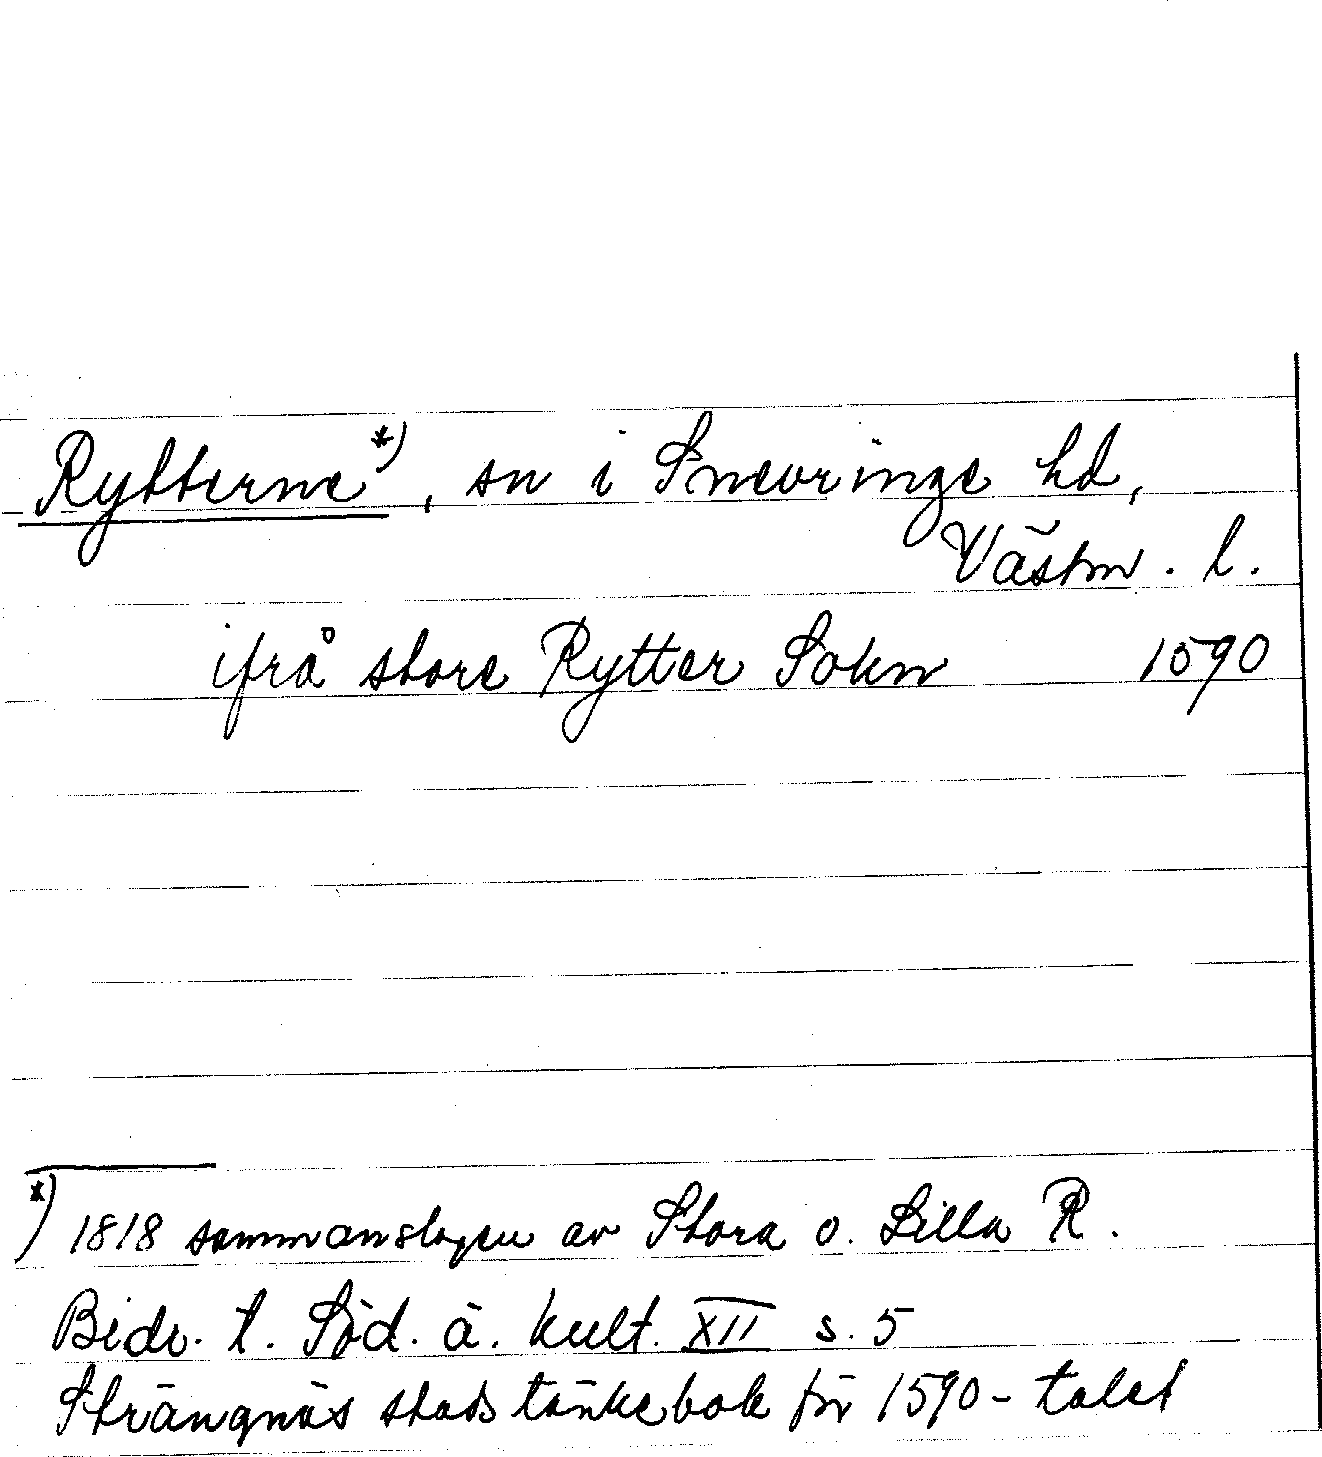 Rytterne *), sn i Snevringe hd,
Västm. l.
ifrå store Rytter Sokn 1590
*) 1818 sammanslagen av Stora o. Lilla R.
Bidr. t. Söd. ä. kult. XII s. 5
Strängnäs stads tänkebok för 1590-talet